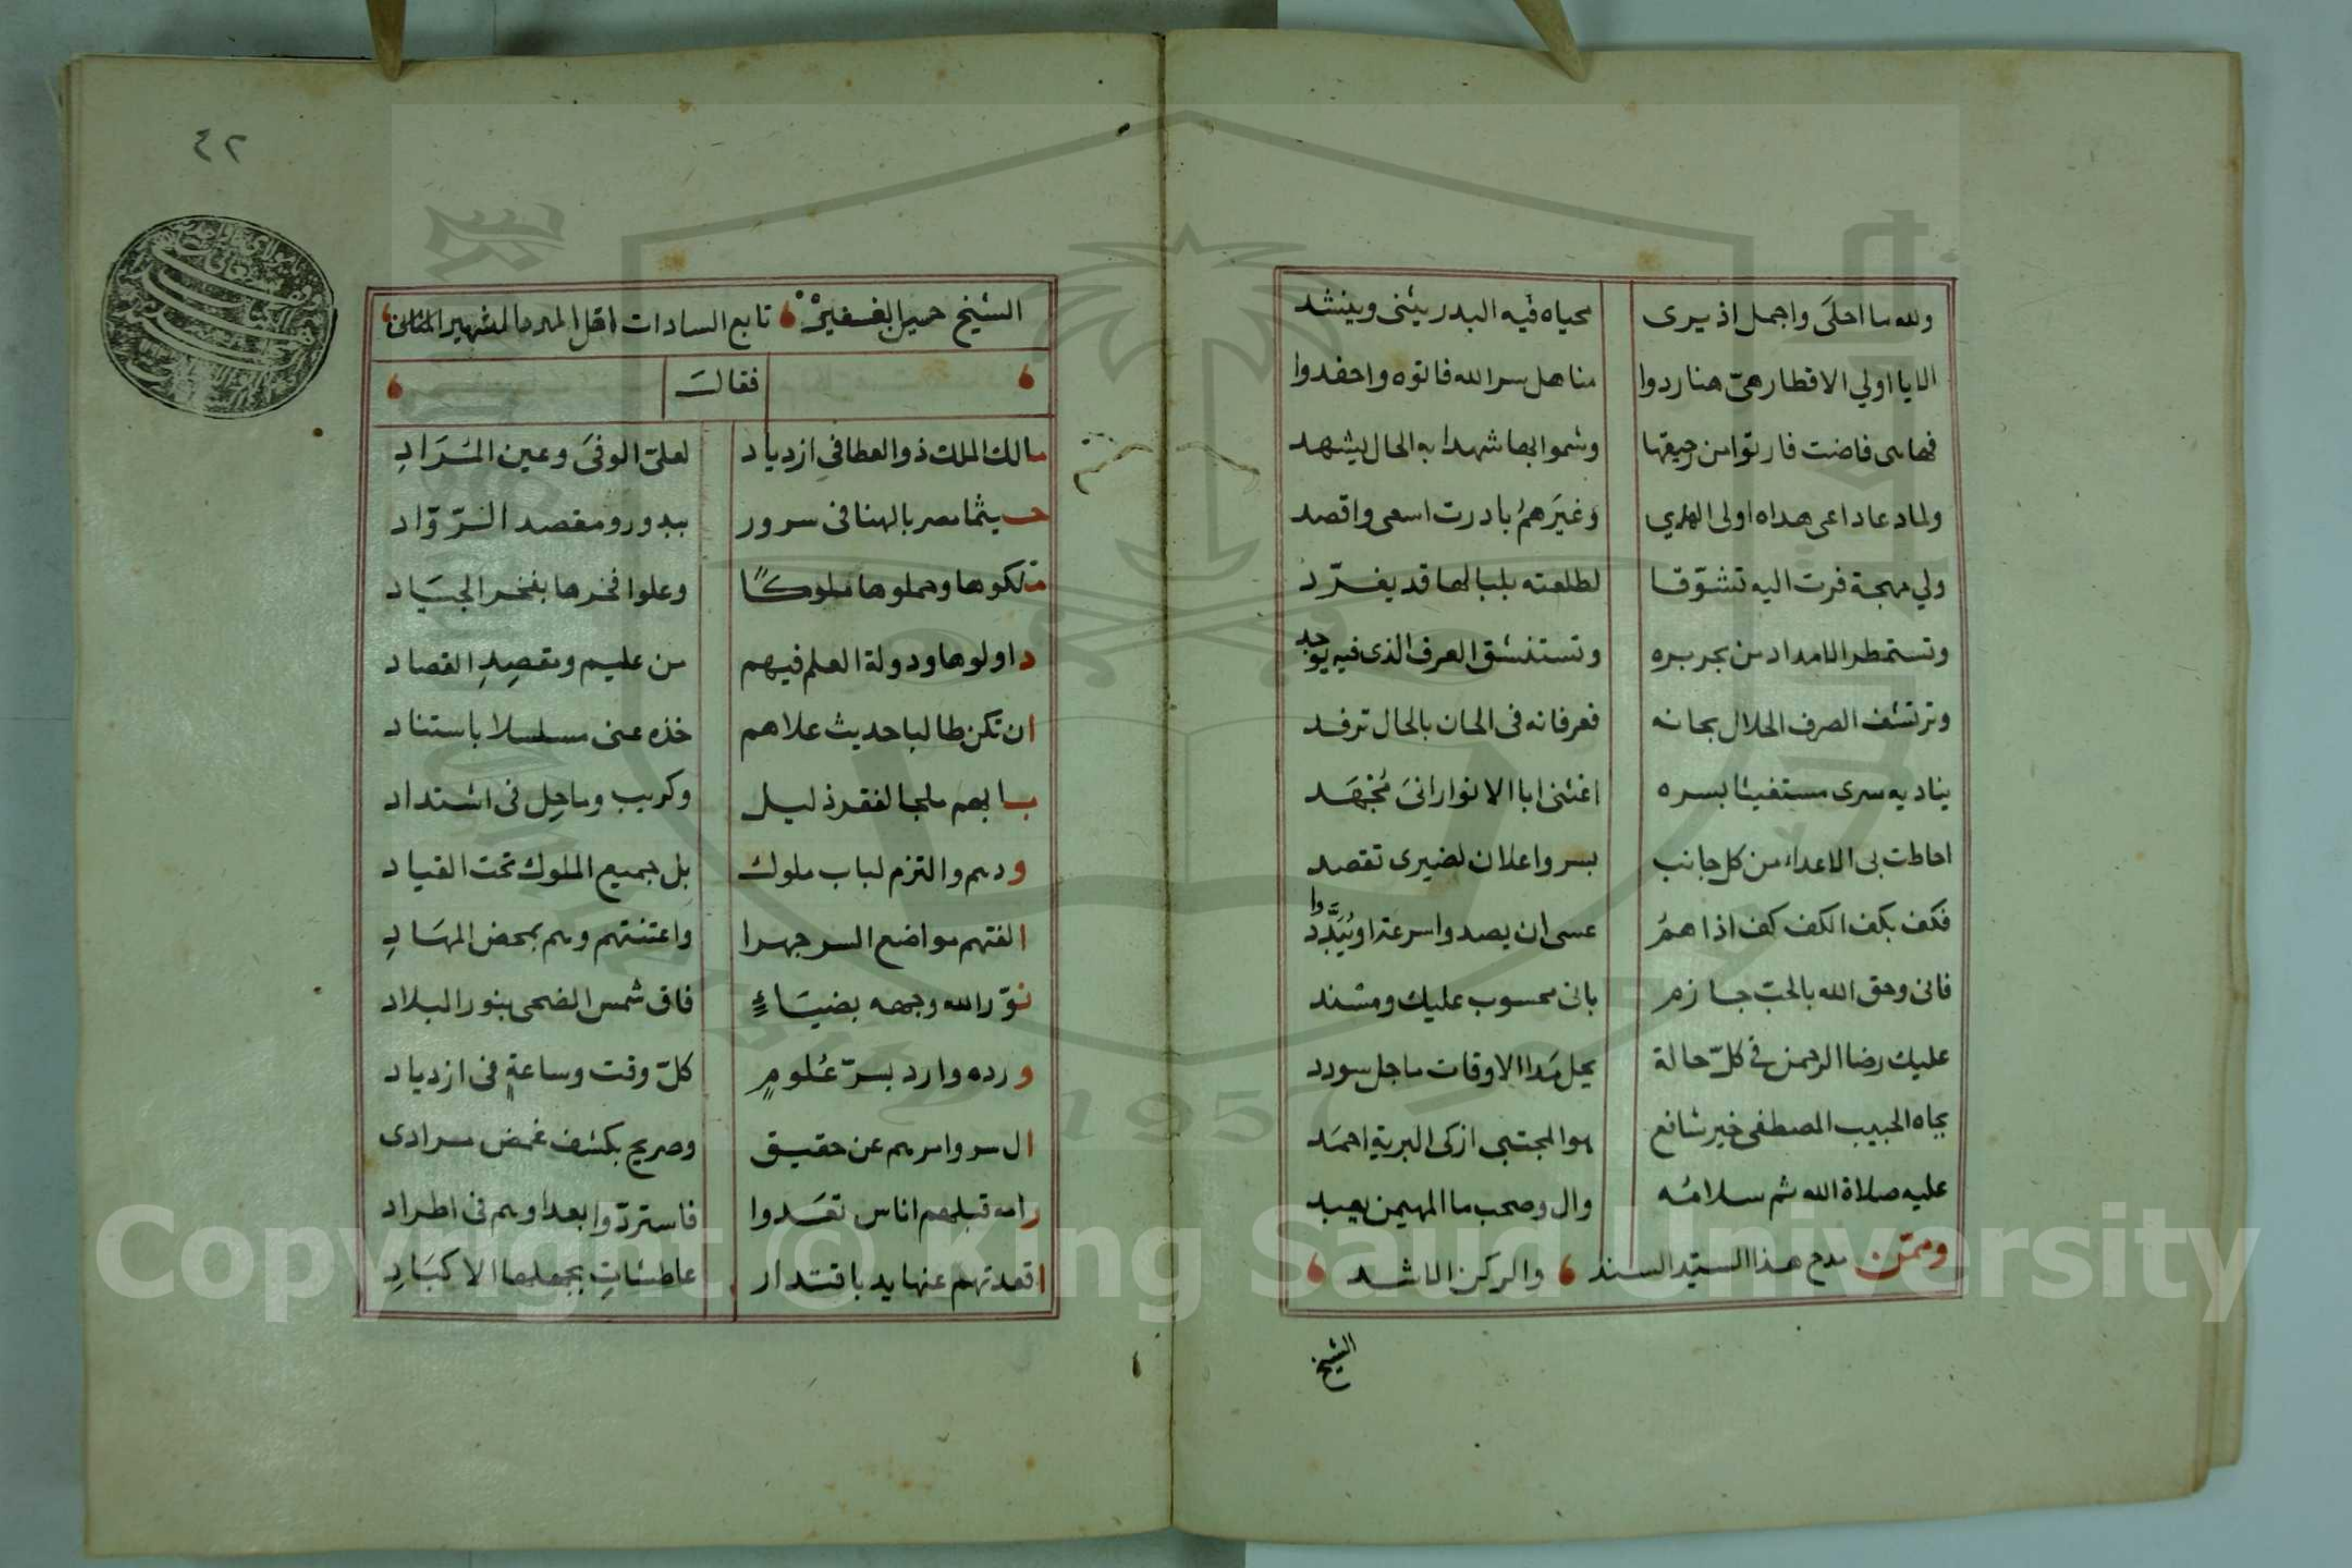 ولله ما احلَى واجمل اذ يرى محياه فيه البدر يثنى وينشد
الا يا اولي الاقطار هىّ هنا ردوا مناهل سر الله فاتوه واحفدوا
فهاهى فاضت فارتوا من رحيقها وشموا بها شهدا به الحال يشهد
ولما دعا داعى هداه اولى الهدي وغيرَهمُ بادرت اسعى واقصد
ولي مهجة فرت اليه تشوّقا لطلعته بلبالها قد يغرّد
وتستمطر الامداد من بحر بره وتستنشق العرف الذى فيه يوجد
وترتشف الصرف الحلال بحانه فعرفانه فى الحان بالحال ترفد
يناديه سرى مستغيثا بسره اغثنى ابا الانوار انىَ مُجْهَد
احاطت بى الاعداء من كل جانب بسر واعلان لضيرى تقصد
فكف بكف الكف كف اذا همُ عسى ان يصدوا سرعة او يُبَدَّدوا
فانى وحق الله بالحبّ جازم بانى محسوب عليك ومسند
عليك رضا الرحمن فى كلّ حالة بحل مَدا الاوقات ما جل سودد
بجاه الحبيب المصطفى خير شافع هو المجتبى ازكى البرية احمَد
عليه صلاة الله ثم سلامُه وال وصحب ما المهيمن يعبد
وممّن مدح هذا السيّد السند والركن الاشد
الشيخ
٤٢
الشيخ تابع السادات اقل
فقالَ
مالك الملك ذو العطا فى ازدياد لعلىّ الوفىَ وعين المُرَادِ
حيثما مصر بالهنا فى سرور ببدور ومقصد الزّوّاد
ملكوها وحملوها ملوكًا وعلوا فخرها بفخر الجيَاد
داولوها ودولة العلم فيهم من عليم ومقصِدِ القصاد
ان تكن طالبا حديث علاهم خذه عنى مسلسلا باستناد
بابهم ملجا لفقر ذليل وكريب وماحِل فى اشتداد
ودم والتزم لباب ملوك بل جميع الملوك تحت القياد
الفتهم مواضع السر جهرا واعتنتهم وهم بمحض المهَادِ
نوّر الله وجهه بضيَاءٍ فاق شمس الضحى بنور البلاد
ورده وارد بسرّ عُلومٍ كلّ وقت وساعةٍ فى ازدياد
ال سر وامرهم عن حقيق وصريح بكشف غمض مرادى
رامه قبلهم اناس تعَدوا فاستردّوا بعدا وهم فى اطراد
اقعدتهم عنها يد باقتدار عاطشاتِ بجهلها الاكبَادِ
Copyright © King Saud University
1957